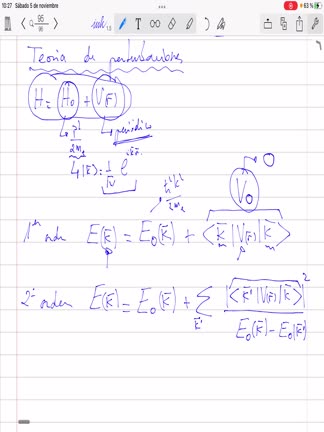 10:27 Sábado 5 de noviembre 63 %
95
Teoría de perturbaciones
H = H₀ + V(r̄)
↳ p̄²/2mₑ ↳ periódico
↳ |k̄⟩ = 1/√V e^{ik̄r̄}
ħ²k²/2mₑ V₀ → 0
1er orden E(k̄) = E₀(k̄) + ⟨k̄|V(r̄)|k̄⟩
2º orden E(k̄) = E₀(k̄) + Σ_{k̄'} |⟨k̄'|V(r̄)|k̄⟩|² / E₀(k̄) − E₀(k̄')